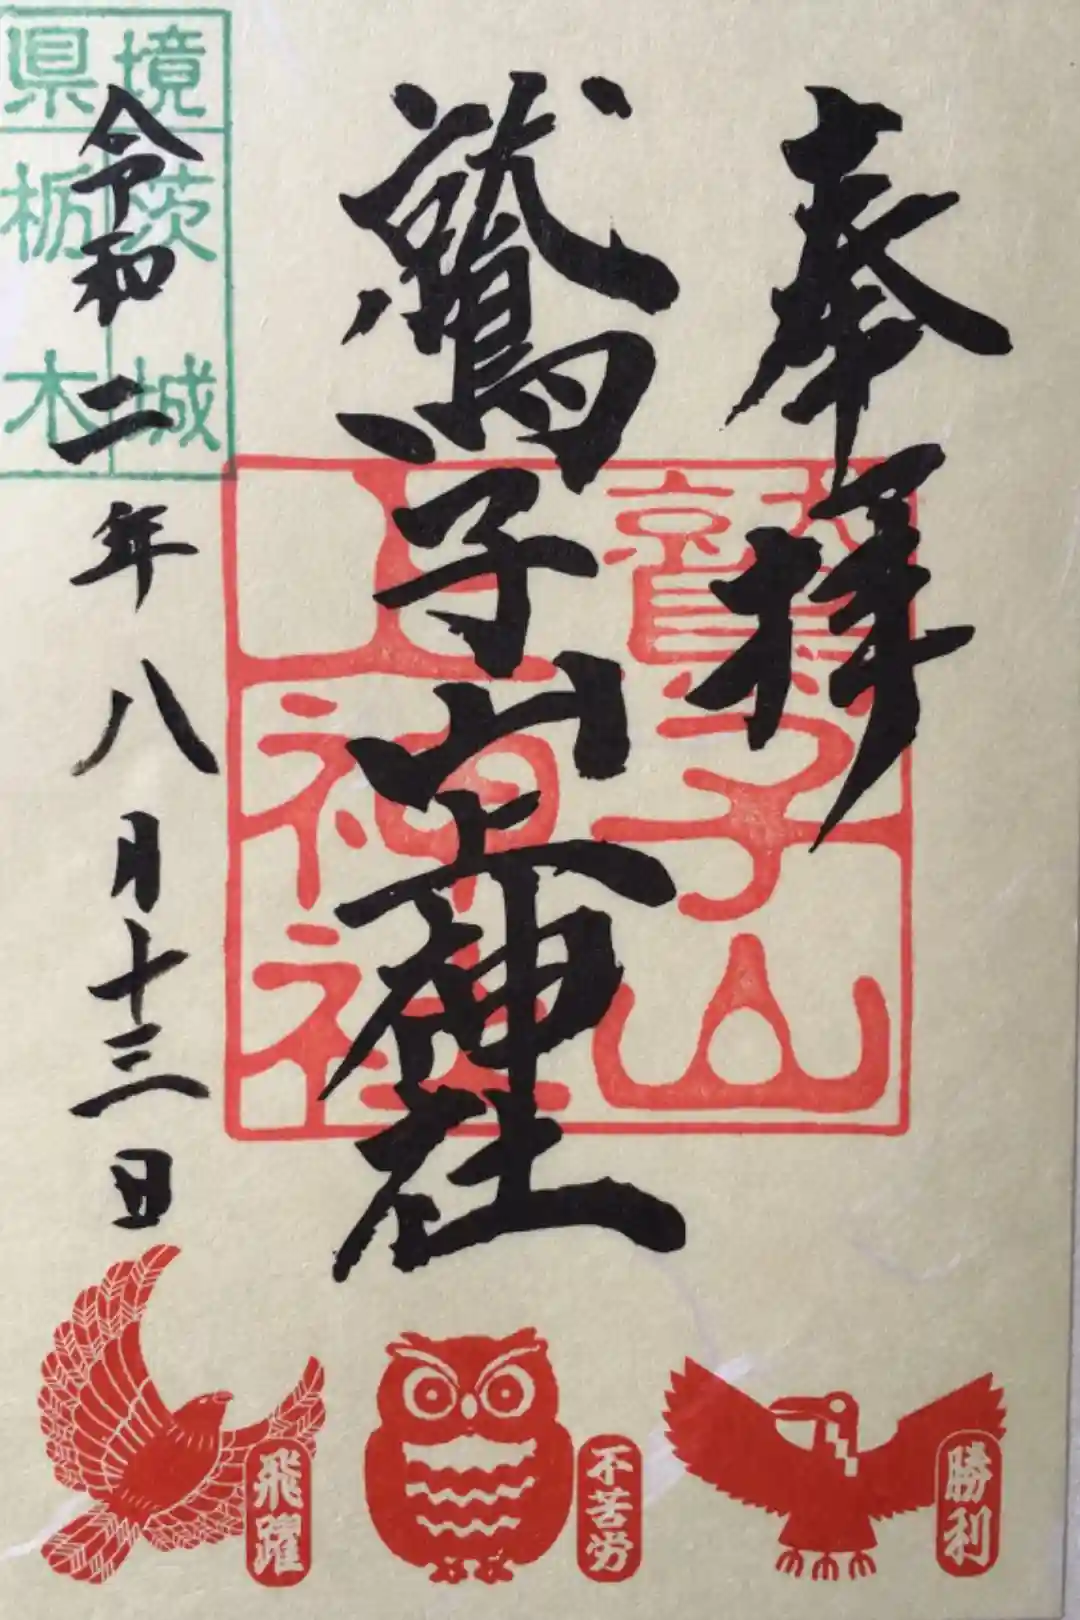 奉拝
鷲子山上神社
令和二年八月十三日
鷲子山
上神社
県境
茨城
栃木
勝利
不苦労
飛躍